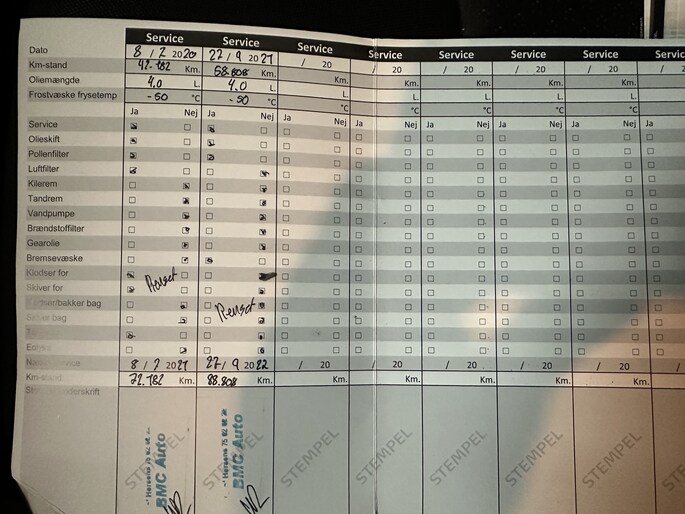 Service Service Service Service Service Service Service
Dato 8 / 2 2020 22 / 9 2021 / 20 / 20 / 20 / 20 / 20
Km-stand 42.182 Km. 58.808 Km. Km. Km. Km. Km. Km.
Oliemængde 4.0 L 4.0 L L. L. L. L. L.
Frostvæske frysetemp -50 °C -50 °C °C °C °C °C °C
Ja Nej Ja Nej Ja Nej Ja Nej Ja Nej Ja Nej Ja Nej
Service
Olieskift
Pollenfilter
Luftfilter
Kilerem
Tandrem
Vandpumpe
Brændstoffilter
Gearolie
Bremsevæske
Klodser for
Skiver for
bakker bag Renset
bag
8 / 2 2021 22 / 9 2022 / 20 / 20 / 20 / 20 / 20
Km-stand 72.182 Km. 88.808 Km. Km. Km. Km. Km. Km.
STEMPEL STEMPEL STEMPEL STEMPEL STEMPEL STEMPEL STEMPEL
BMC Auto BMC Auto